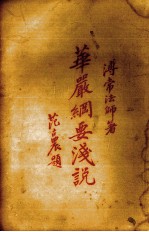 溥常法師著
華嚴綱要淺說
范古農題